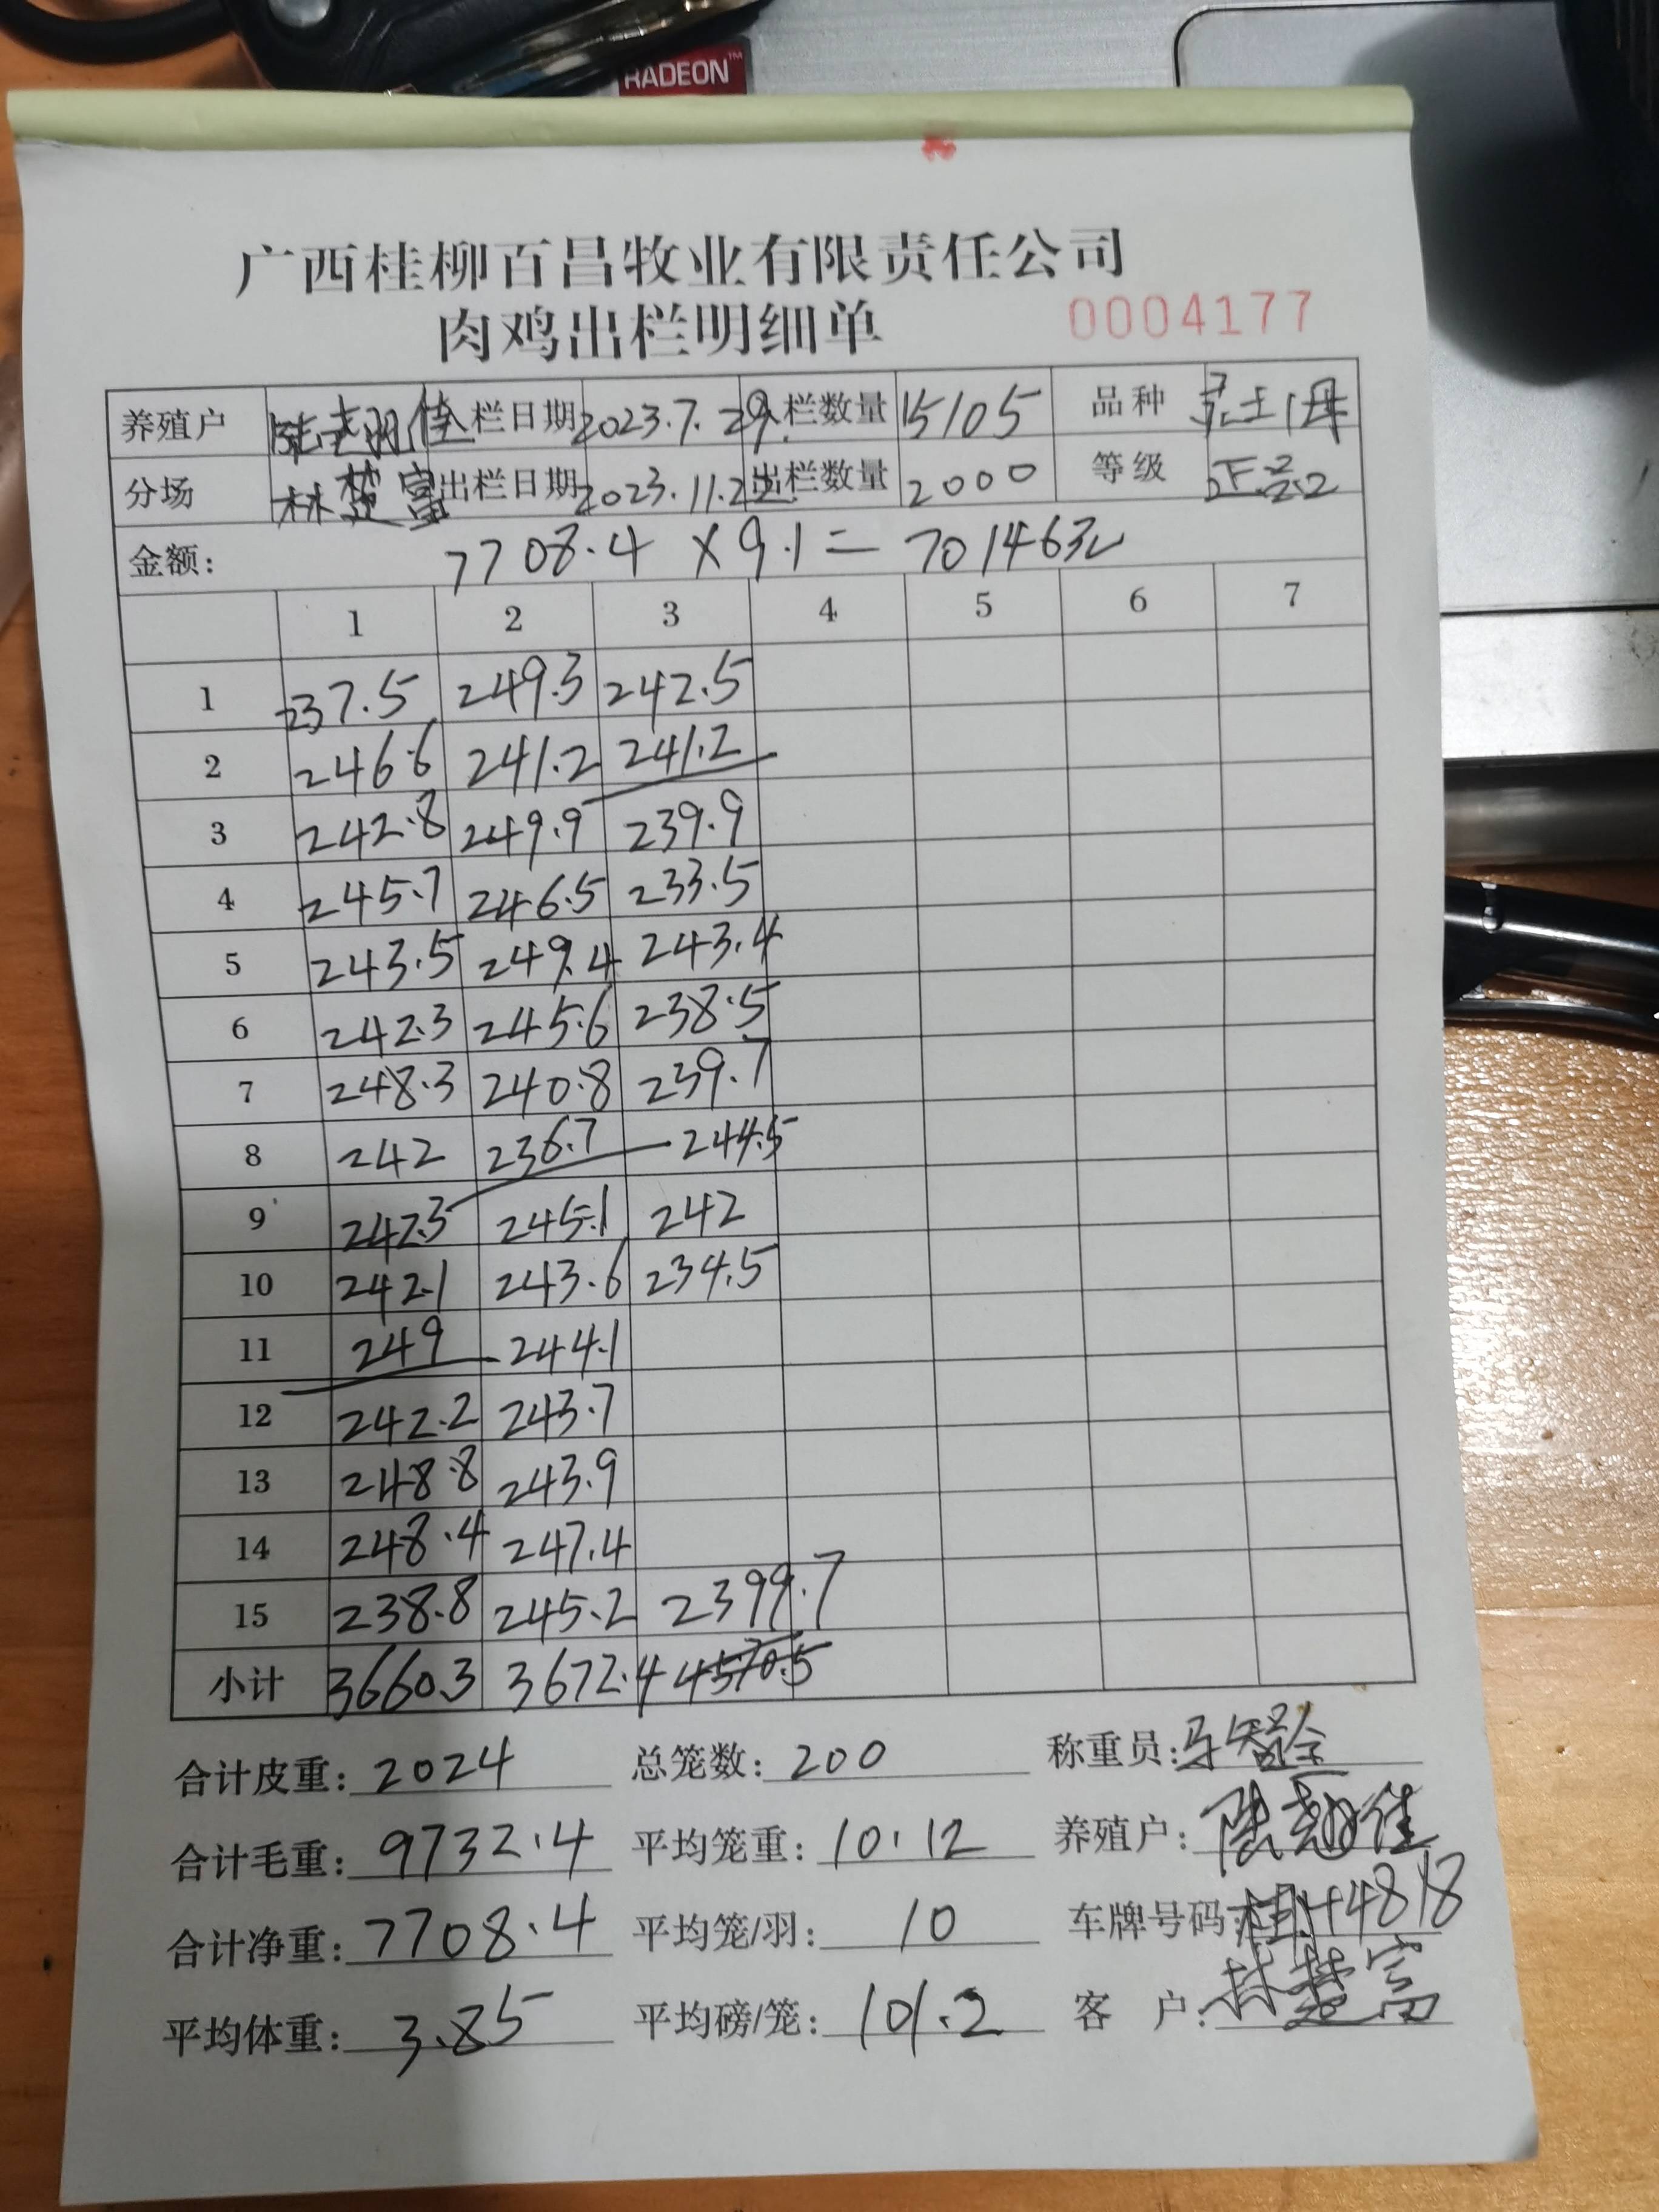 RADEON™
广西桂柳百昌牧业有限责任公司
肉鸡出栏明细单 0004177
养殖户 陆翘佳 入栏日期 2023.7.29. 入栏数量 15105 品种 母
分场 林楚富 出栏日期 2023.11.22. 出栏数量 2000 等级 正品
金额: 7708.4 × 9.1 = 70146元
1 2 3 4 5 6 7
1 237.5 249.3 242.5
2 246.6 241.2 241.2
3 242.8 249.9 239.9
4 245.7 246.5 233.5
5 243.5 249.4 243.4
6 242.3 245.6 238.5
7 248.3 240.8 239.7
8 242 236.7 244.5
9 242.3 245.1 242
10 242.1 243.6 234.5
11 249 244.1
12 242.2 243.7
13 248.8 243.9
14 248.4 247.4
15 238.8 245.2 2399.7
小计 3660.3 3672.4 4570.5
合计皮重: 2024 总笼数: 200 称重员:
合计毛重: 9732.4 平均笼重: 10.12 养殖户: 陆翘佳
合计净重: 7708.4 平均笼/羽: 10 车牌号码: 桂H4818
平均体重: 3.85 平均磅/笼: 101.2 客 户: 林楚富